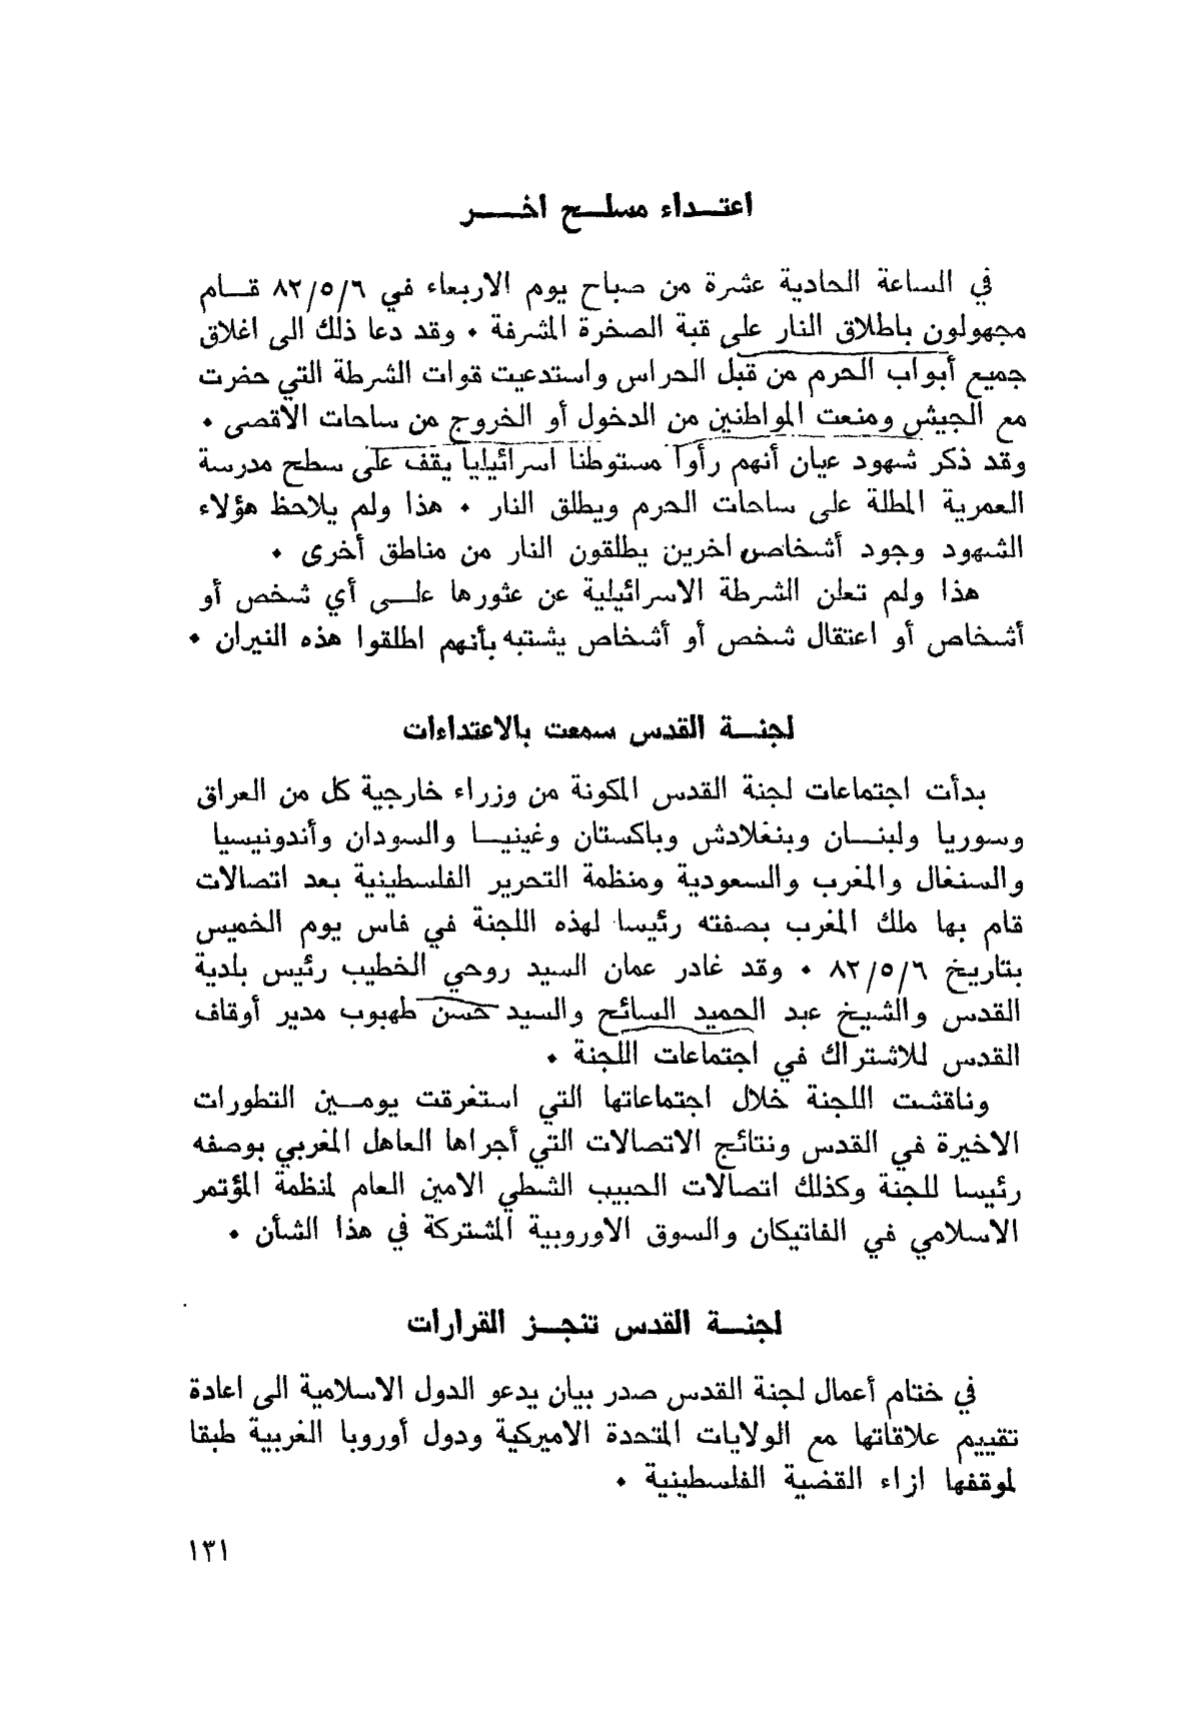 اعتـــداء مسلـــح اخـــــر
في الساعة الحادية عشرة من صباح يوم الاربعاء في ٨٢/٥/٦ قـــام
مجهولون باطلاق النار على قبة الصخرة المشرفة • وقد دعا ذلك الى اغلاق
جميع أبواب الحرم من قبل الحراس واستدعيت قوات الشرطة التي حضرت
مع الجيش ومنعت المواطنين من الدخول أو الخروج من ساحات الاقصى •
وقد ذكر شهود عيان أنهم رأوا مستوطنا اسرائيليا يقف على سطح مدرسة
العمرية المطلة على ساحات الحرم ويطلق النار • هذا ولم يلاحظ هؤلاء
الشهود وجود أشخاص اخرين يطلقون النار من مناطق أخرى •
هذا ولم تعلن الشرطة الاسرائيلية عن عثورها علـــى أي شخص أو
أشخاص أو اعتقال شخص أو أشخاص يشتبه بأنهم اطلقوا هذه النيران •
لجنـــة القدس سمعت بالاعتداءات
بدأت اجتماعات لجنة القدس المكونة من وزراء خارجية كل من العراق
وسوريا ولبنـــان وبنغلادش وباكستان وغينيـــا والسودان وأندونيسيا
والسنغال والمغرب والسعودية ومنظمة التحرير الفلسطينية بعد اتصالات
قام بها ملك المغرب بصفته رئيسا لهذه اللجنة في فاس يوم الخميس
بتاريخ ٨٢/٥/٦ • وقد غادر عمان السيد روحي الخطيب رئيس بلدية
القدس والشيخ عبد الحميد السائح والسيد حسن طهبوب مدير أوقاف
القدس للاشتراك في اجتماعات اللجنة •
وناقشت اللجنة خلال اجتماعاتها التي استغرقت يومـــين التطورات
الاخيرة في القدس ونتائج الاتصالات التي أجراها العاهل المغربي بوصفه
رئيسا للجنة وكذلك اتصالات الحبيب الشطي الامين العام لمنظمة المؤتمر
الاسلامي في الفاتيكان والسوق الاوروبية المشتركة في هذا الشأن •
لجنـــة القدس تنجـــز القرارات
في ختام أعمال لجنة القدس صدر بيان يدعو الدول الاسلامية الى اعادة
تقييم علاقاتها مع الولايات المتحدة الاميركية ودول أوروبا الغربية طبقا
لموقفها ازاء القضية الفلسطينية •
١٣١